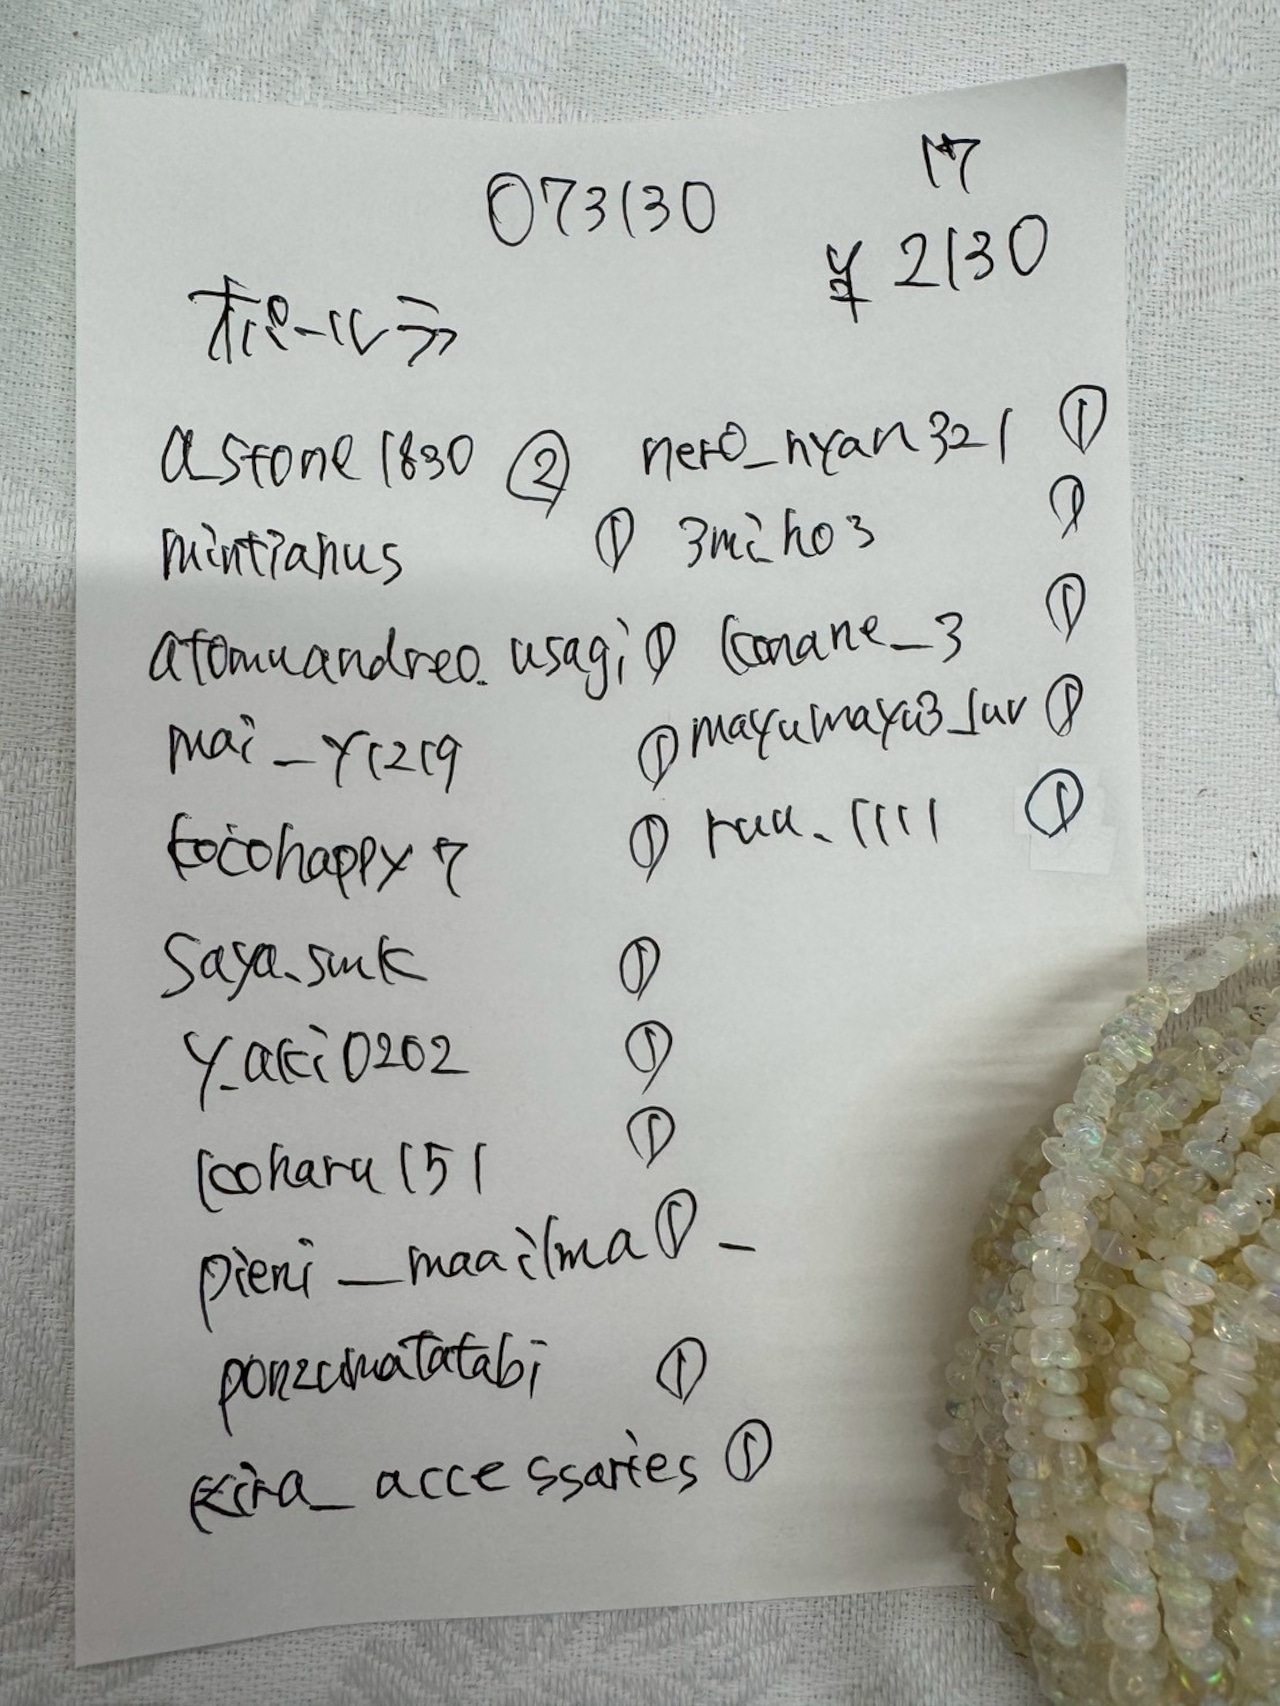 073130
17
¥2130
オパールラフ
a_stone1830 ②
mintianus ①
atomuandreo.usagi ①
mai_y1219 ①
cocohappy7 ①
saya.smk ①
y_aki0202 ①
koharu151 ①
pieni_maailma ① _
ponzumatatabi ①
kira_accessaries ①
nero_nyan321 ①
3miho3 ①
konane_3 ①
mayumayu3_luv ①
ruu.1111 ①